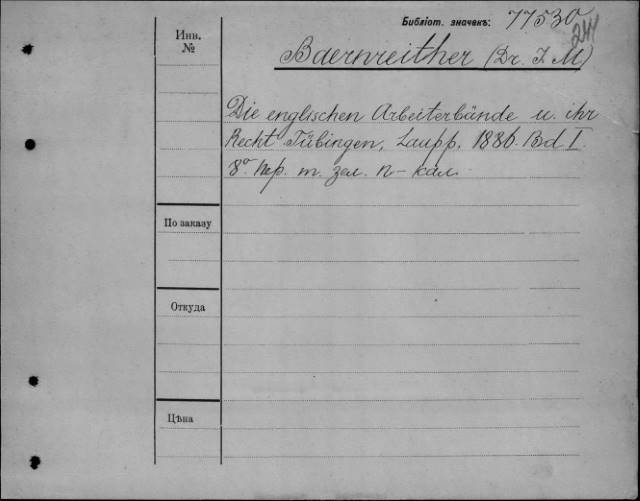 Библіот. значекъ: 77530
244
Инв.
№
Baernreither (Dr. J. M)
Die englischen Arbeiterbände u. ihr
Recht Tübingen, Laupp, 1886. Bd I.
8° пер. т. зел. п-кал.
По заказу
Откуда
Цѣна